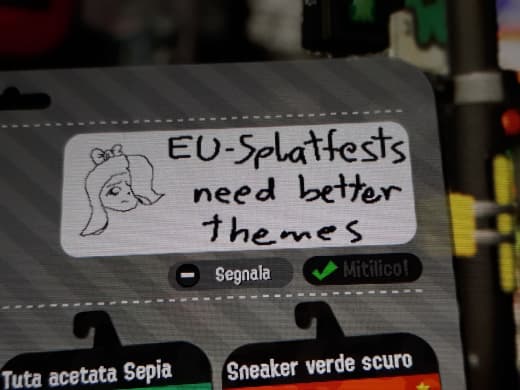 EU-Splatfests
need better
themes
Segnala
Mitilico!
Tuta acetata Sepia
Sneaker verde scuro